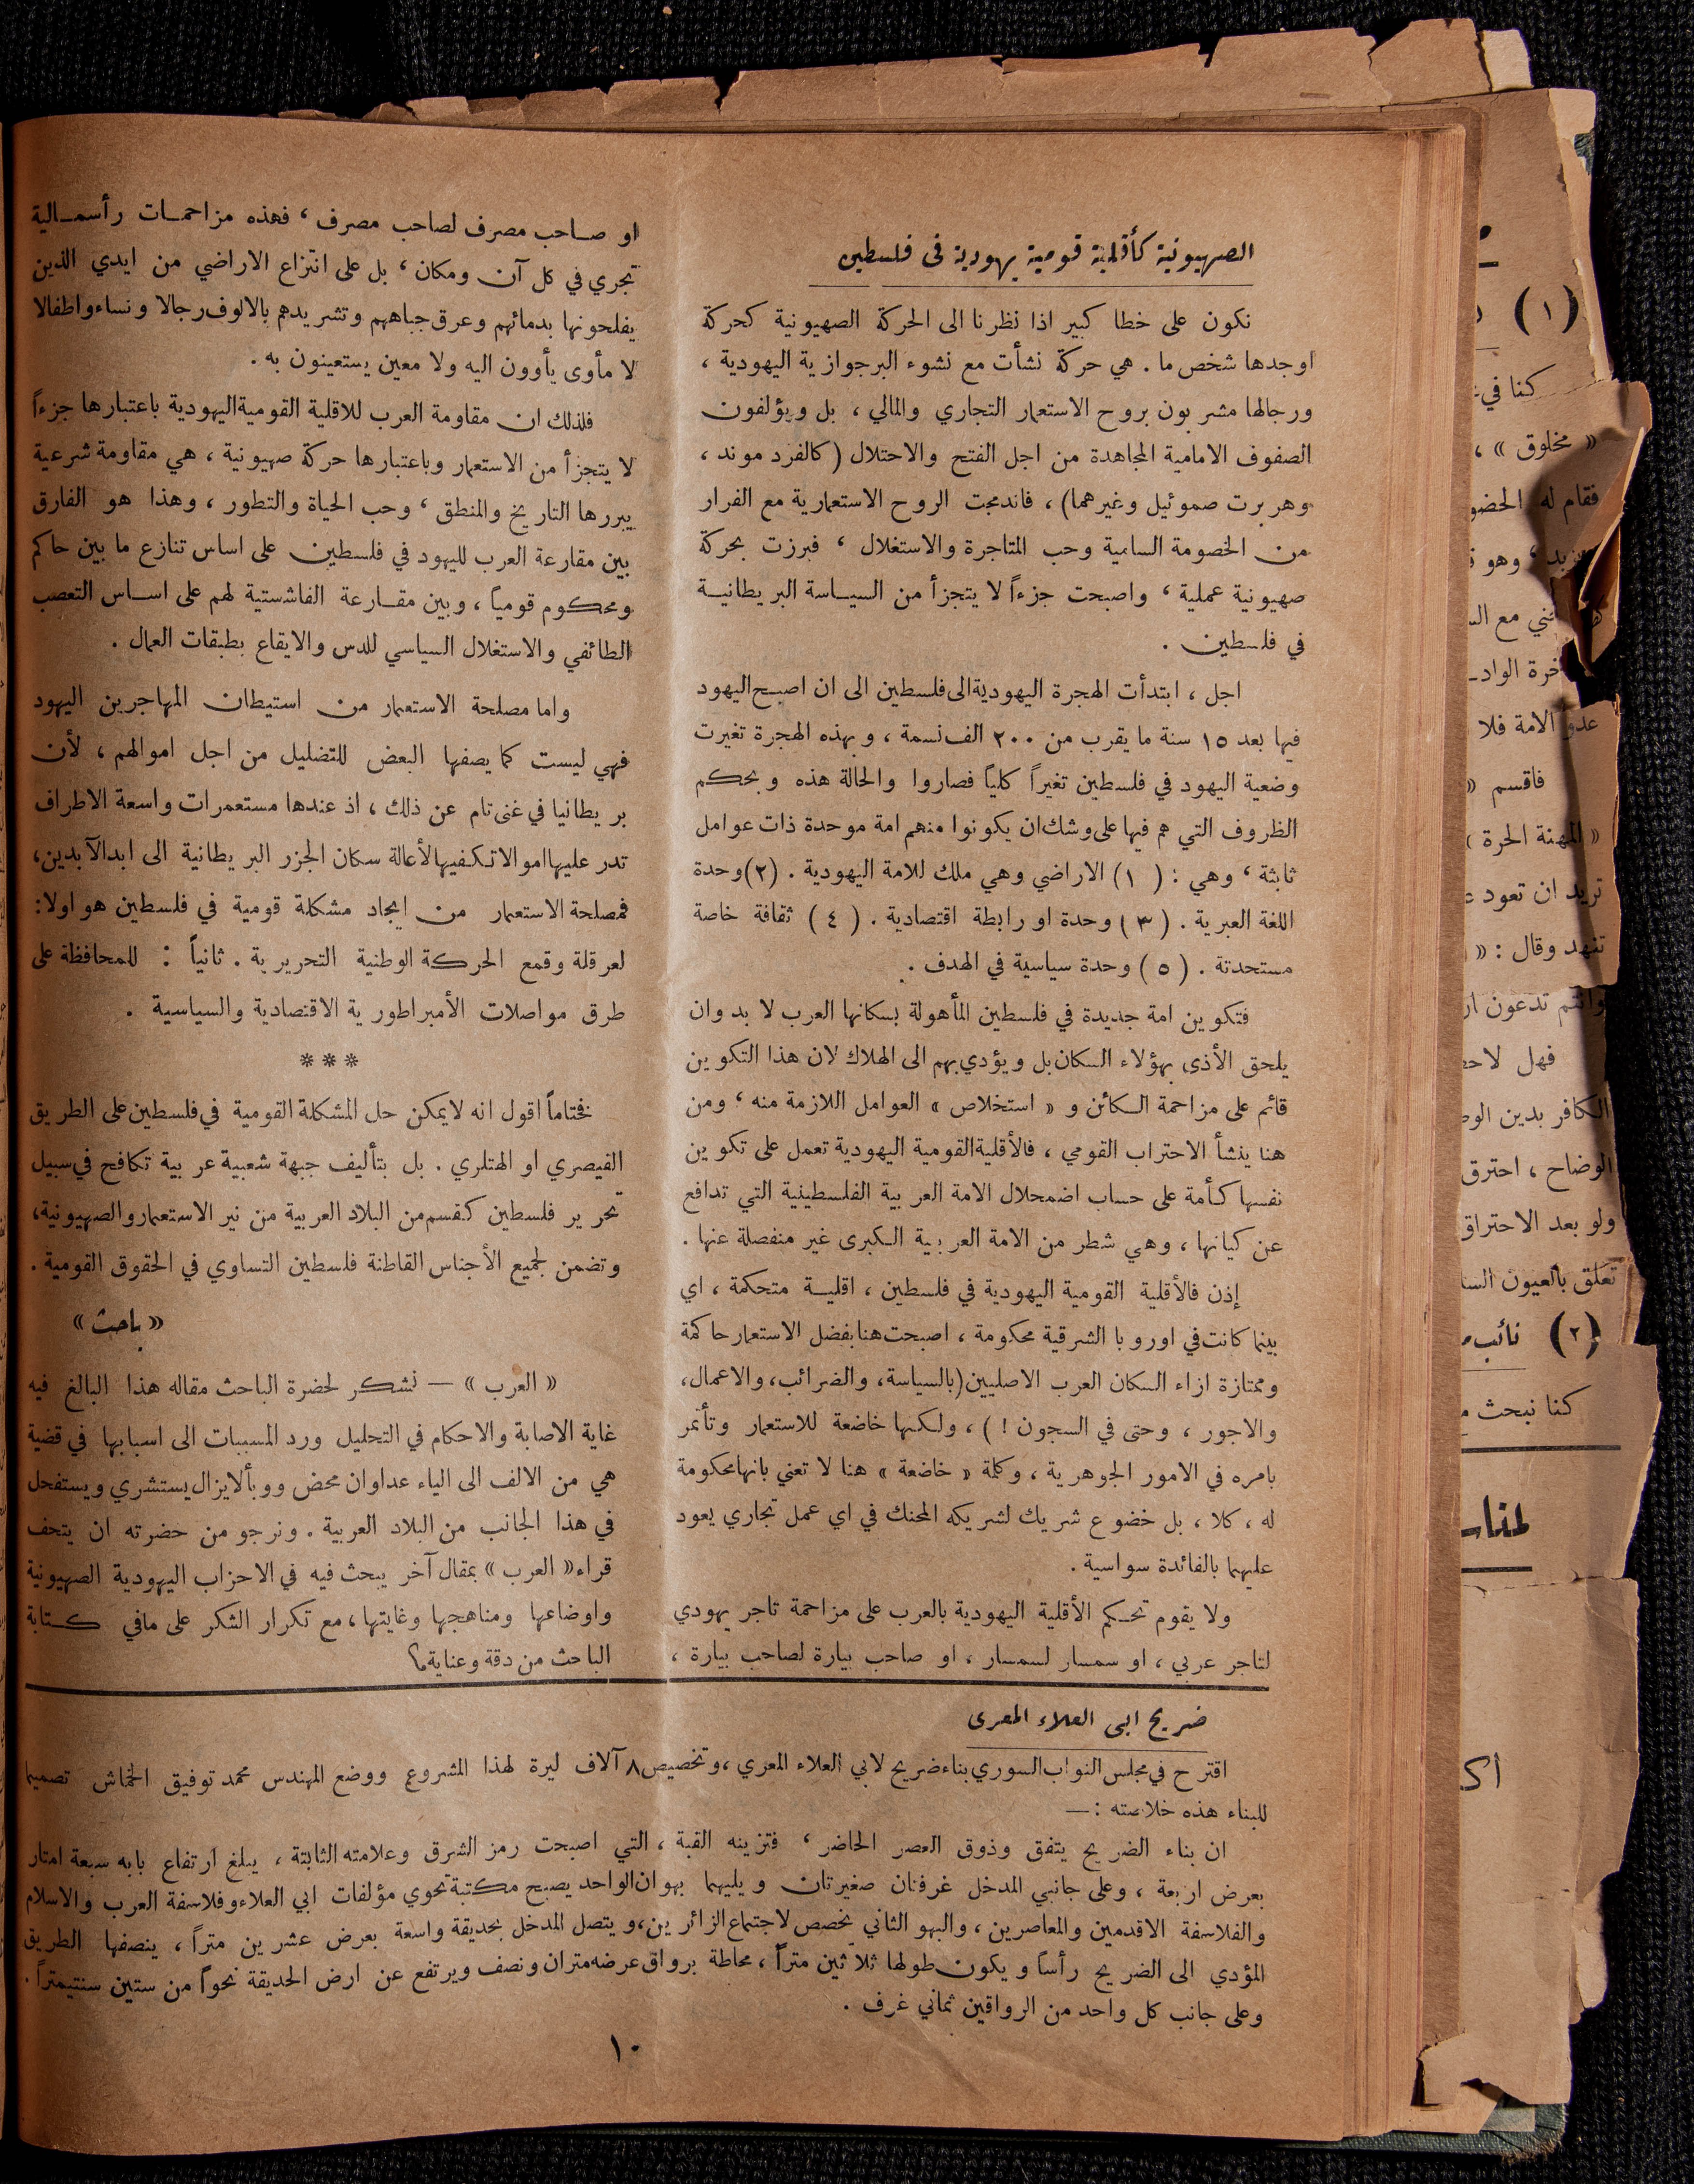 الصهيونية كأقلية قومية يهودية فى فلسطين
نكون على خطا كبير اذا نظرنا الى الحركة الصهيونية كحركة
اوجدها شخص ما . هي حركة نشأت مع نشوء البرجوازية اليهودية ،
ورجالها مشربون بروح الاستعمار التجاري والمالي ، بل ويؤلفون
الصفوف الامامية المجاهدة من اجل الفتح والاحتلال ( كالفرد موند ،
وهربرت صموئيل وغيرهما) ، فاندمجت الروح الاستعمارية مع الفرار
من الخصومة السامية وحب المتاجرة والاستغلال ، فبرزت بحركة
صهيونية عملية ، واصبحت جزءاً لا يتجزأ من السياسة البريطانية
في فلسطين .
اجل ، ابتدأت الهجرة اليهودية الى فلسطين الى ان اصبح اليهود
فيها بعد ١٥ سنة ما يقرب من ٢٠٠ الف نسمة ، وبهذه الهجرة تغيرت
وضعية اليهود في فلسطين تغيراً كلياً فصاروا والحالة هذه وبحكم
الظروف التي هم فيها على وشك ان يكونوا منهم امة موحدة ذات عوامل
ثابثة ، وهي : ( ١ ) الاراضي وهي ملك للامة اليهودية . (٢) وحدة
اللغة العبرية . ( ٣ ) وحدة او رابطة اقتصادية . ( ٤ ) ثقافة خاصة
مستحدثة . ( ٥ ) وحدة سياسية في الهدف .
فتكوين امة جديدة في فلسطين المأهولة بسكانها العرب لا بد وان
يلحق الأذى بهؤلاء السكان بل ويؤدي بهم الى الهلاك لان هذا التكوين
قائم على مزاحمة الكائن و « استخلاص » العوامل اللازمة منه ، ومن
هنا ينشأ الاحتراب القومي ، فالأقلية القومية اليهودية تعمل على تكوين
نفسها كأمة على حساب اضمحلال الامة العربية الفلسطينية التي تدافع
عن كيانها ، وهي شطر من الامة العربية الكبرى غير منفصلة عنها .
إذن فالأقلية القومية اليهودية في فلسطين ، اقلية متحكمة ، اي
بينما كانت في اوروبا الشرقية محكومة ، اصبحت هنا بفضل الاستعمار حاكمة
وممتازة ازاء السكان العرب الاصليين (بالسياسة ، والضرائب ، والاعمال ،
والاجور ، وحتى في السجون ! ) ، ولكنها خاضعة للاستعمار وتأتمر
بامره في الامور الجوهرية ، وكلمة « خاضعة » هنا لا تعني بانها محكومة
له ، كلا ، بل خضوع شريك لشريكه المحنك في اي عمل تجاري يعود
عليهما بالفائدة سواسية .
ولا يقوم تحكم الأقلية اليهودية بالعرب على مزاحمة تاجر يهودي
لتاجر عربي ، او سمسار لسمسار ، او صاحب بيارة لصاحب بيارة ،
او صاحب مصرف لصاحب مصرف ، فهذه مزاحمات رأسمالية
تجري في كل آن ومكان ، بل على انتزاع الاراضي من ايدي الذين
يفلحونها بدمائهم وعرق جباههم وتشريدهم بالالوف رجالا ونساء واطفالا
لا مأوى يأوون اليه ولا معين يستعينون به .
فلذلك ان مقاومة العرب للاقلية القومية اليهودية باعتبارها جزءاً
لا يتجزأ من الاستعمار وباعتبارها حركة صهيونية ، هي مقاومة شرعية
يبررها التاريخ والمنطق ، وحب الحياة والتطور ، وهذا هو الفارق
بين مقارعة العرب لليهود في فلسطين على اساس تنازع ما بين حاكم
ومحكوم قومياً ، وبين مقارعة الفاشستية لهم على اساس التعصب
الطائفي والاستغلال السياسي للدس والايقاع بطبقات العمال .
واما مصلحة الاستعمار من استيطان المهاجرين اليهود
فهي ليست كما يصفها البعض للتضليل من اجل اموالهم ، لأن
بريطانيا في غنى تام عن ذلك ، اذ عندها مستعمرات واسعة الاطراف
تدر عليها اموالا تكفيها لأعالة سكان الجزر البريطانية الى ابد الآبدين ،
فمصلحة الاستعمار من ايجاد مشكلة قومية في فلسطين هو اولا :
لعرقلة وقمع الحركة الوطنية التحريرية . ثانياً : للمحافظة على
طرق مواصلات الأمبراطورية الاقتصادية والسياسية .
* * *
فختاماً اقول انه لا يمكن حل المشكلة القومية في فلسطين على الطريق
القيصري او الهتلري . بل بتأليف جبهة شعبية عربية تكافح في سبيل
تحرير فلسطين كقسم من البلاد العربية من نير الاستعمار والصهيونية ،
وتضمن لجميع الأجناس القاطنة فلسطين التساوي في الحقوق القومية .
« باحث »
« العرب » — نشكر لحضرة الباحث مقاله هذا البالغ فيه
غاية الاصابة والاحكام في التحليل ورد المسببات الى اسبابها في قضية
هي من الالف الى الياء عداوان محض ووبأ لايزال يستشري ويستفحل
في هذا الجانب من البلاد العربية . ونرجو من حضرته ان يتحف
قراء « العرب » بمقال آخر يبحث فيه في الاحزاب اليهودية الصهيونية
واوضاعها ومناهجها وغايتها ، مع تكرار الشكر على مافي كتابة
الباحث من دقة وعناية
ضريح ابى العلاء المعرى
اقترح في مجلس النواب السوري بناء ضريح لابي العلاء المعري ، وتخصيص ٨ آلاف ليرة لهذا المشروع ووضع المهندس محمد توفيق الخماش تصميما
للبناء هذه خلاصته : —
ان بناء الضريح يتفق وذوق العصر الحاضر ، فتزينه القبة ، التي اصبحت رمز الشرق وعلامته الثابتة ، يبلغ ارتفاع بابه سبعة امتار
بعرض اربعة ، وعلى جانبي المدخل غرفتان صغيرتان ويليهما بهوان الواحد يصبح مكتبة تحوي مؤلفات ابي العلاء وفلاسفة العرب والاسلام
والفلاسفة الاقدمين والمعاصرين ، والبهو الثاني يخصص لاجتماع الزائرين ، ويتصل المدخل بحديقة واسعة بعرض عشرين متراً ، ينصفها الطريق
المؤدي الى الضريح رأساً ويكون طولها ثلاثين متراً ، محاطة برواق عرضه متران ونصف ويرتفع عن ارض الحديقة نحواً من ستين سنتيمتراً .
وعلى جانب كل واحد من الرواقين ثماني غرف .
١٠
(١)
كنا في
« مخلوق » ،
فقام له الحضو
وهو
ني مع ال
خرة الواد
عدو الامة فلا
فاقسم «
« المهنة الحرة »
تريد ان تعود ع
تنهد وقال : «
وانتم تدعون ار
فهل لاحظ
الكافر بدين الو
الوضاح ، احترق
ولو بعد الاحتراق
تعلق بالعيون السا
(٢) نائب
كنا نبحث م
لمنا
اك